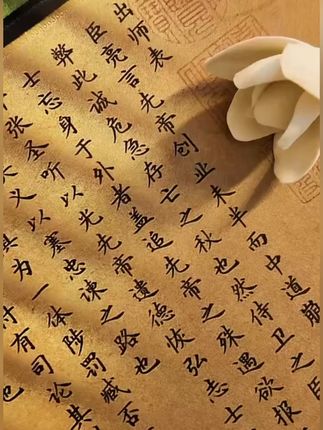 出师表
臣亮言先帝创业未半而中道崩
弊此诚危急存亡之秋也然侍卫之臣
士忘身于外者盖追先帝之殊遇欲报
张圣听以光先帝遗德恢弘志士
义以塞忠谏之路也
为一体陟罚臧否
付有司论其
也